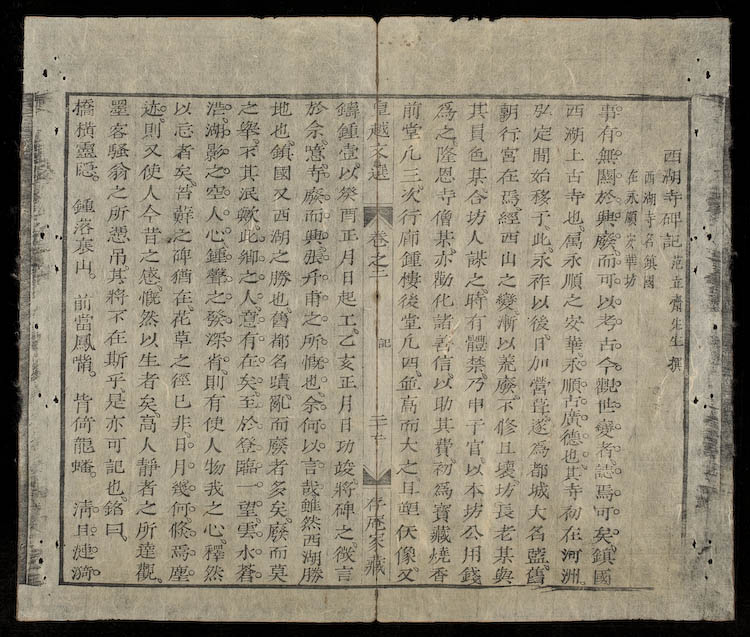 西湖寺碑記 范立齋先生撰
西湖寺名鎮國
在永順安華坊
事有無關於興廢而可以考古今觀世變者誌焉可矣鎮國
西湖上古寺也属永順之安華永順古廣德也其寺初在河洲
弘定間始移于此永祚以後日加營葺遂爲都城大名藍舊
朝行宮在焉經西山之變漸以荒廢不修且壞坊長老某與
其員色某合坊人謀之時有體禁乃申于官以本坊公用錢
爲之隆恩寺僧某亦勸化諸善信以助其費初爲寶藏燒香
前堂凡三次行廊鍾樓後堂凡四並高而大之且塑佛像又
卓越文選 卷之二 記 二十 存庵家藏
鑄鍾壹以癸酉正月日起工乙亥正月日功竣將碑之徵言
於余噫寺廢而興張升甫之所慨也余何以言哉雖然西湖勝
地也鎮國又西湖之勝也舊都名蹟亂而廢者多矣廢而莫
之舉不其泯歟此鄉之人意有在矣至於登臨一望雲水蒼
浩湖影之空人心鍾聲之發深省則有使人物我之心釋然
以忘者矣若蘚之碑猶在花草之徑已非日月幾何倏焉塵
迹則又使人今昔之感慨然以生者矣高人靜者之所達觀
墨客騷翁之所憑吊其將不在斯乎是亦可記也銘曰
橋橫靈隱 鍾落衰山 前當鳳嘴 皆倚龍蟠 清且漣漪